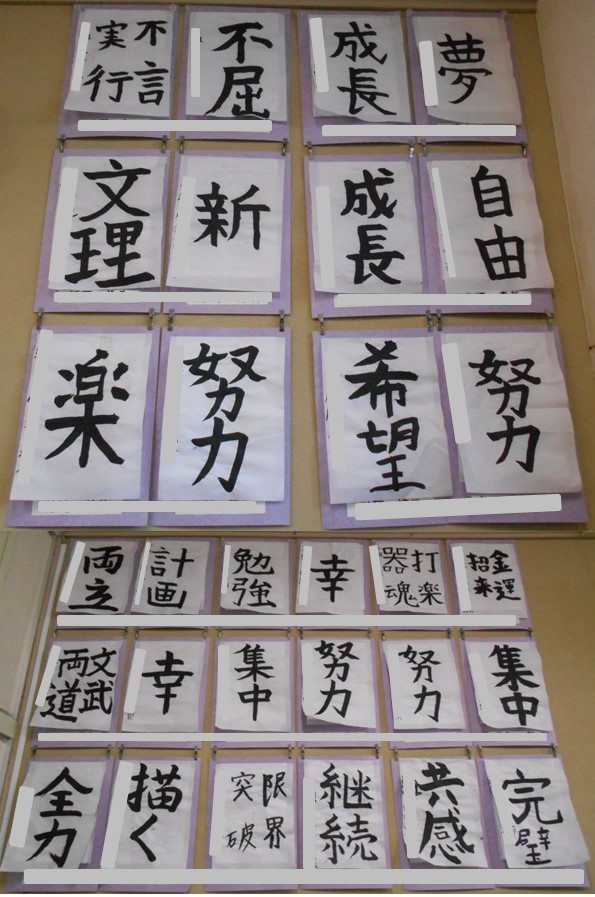 不言
実行
不屈
成長
夢
文理
新
成長
自由
楽
努力
希望
努力
両立
計画
勉強
幸
打楽
器魂
金運
招来
文武
両道
幸
集中
努力
努力
集中
全力
描く
限界
突破
継続
共感
完璧